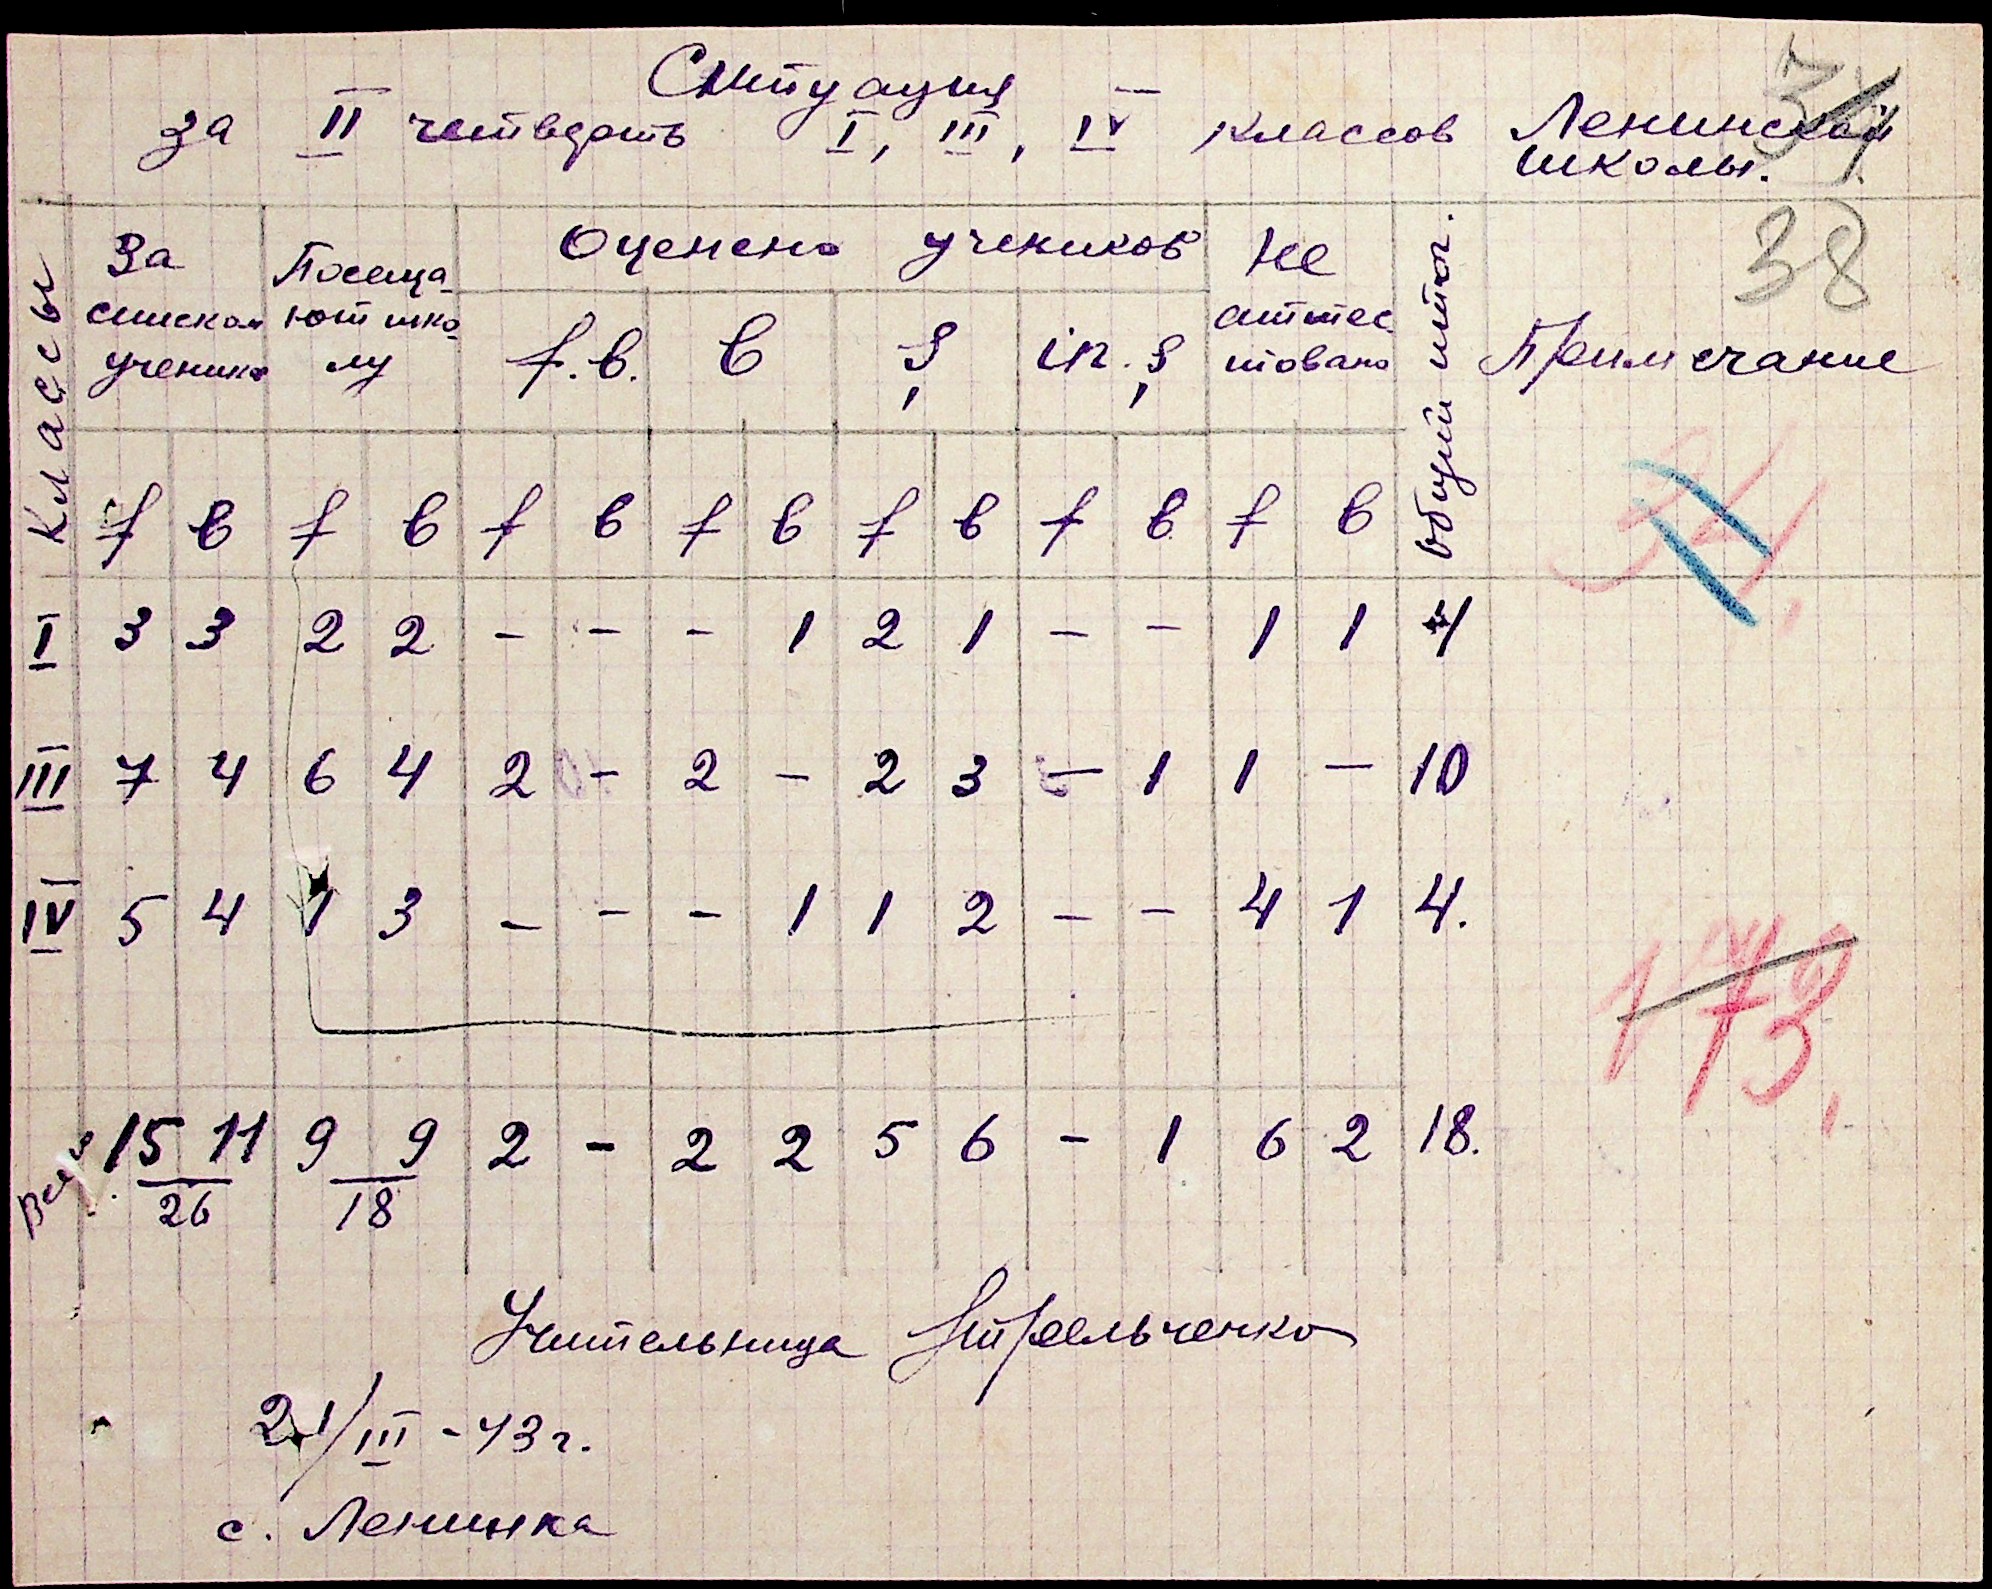 Ситуация
за II четверть I, III, IV классов Ленинской
школы.
34
38
Классы
За списком ученико
Посеща- ют шко- лу
Оценено учеников
f.b. b ș in.ș
Не аттес- товано
общий итог.
Примечание
f b f b f b f b f b f b f b
I 3 3 2 2 - - - 1 2 1 - - 1 1 4
III 7 4 6 4 2 - 2 - 2 3 - 1 1 - 10
IV 5 4 1 3 - - - 1 1 2 - - 4 1 4.
173,
Всего 15 11 9 9 2 - 2 2 5 6 - 1 6 2 18.
26 18
Учительница Стрельченко
21/III -43г.
с. Ленинка